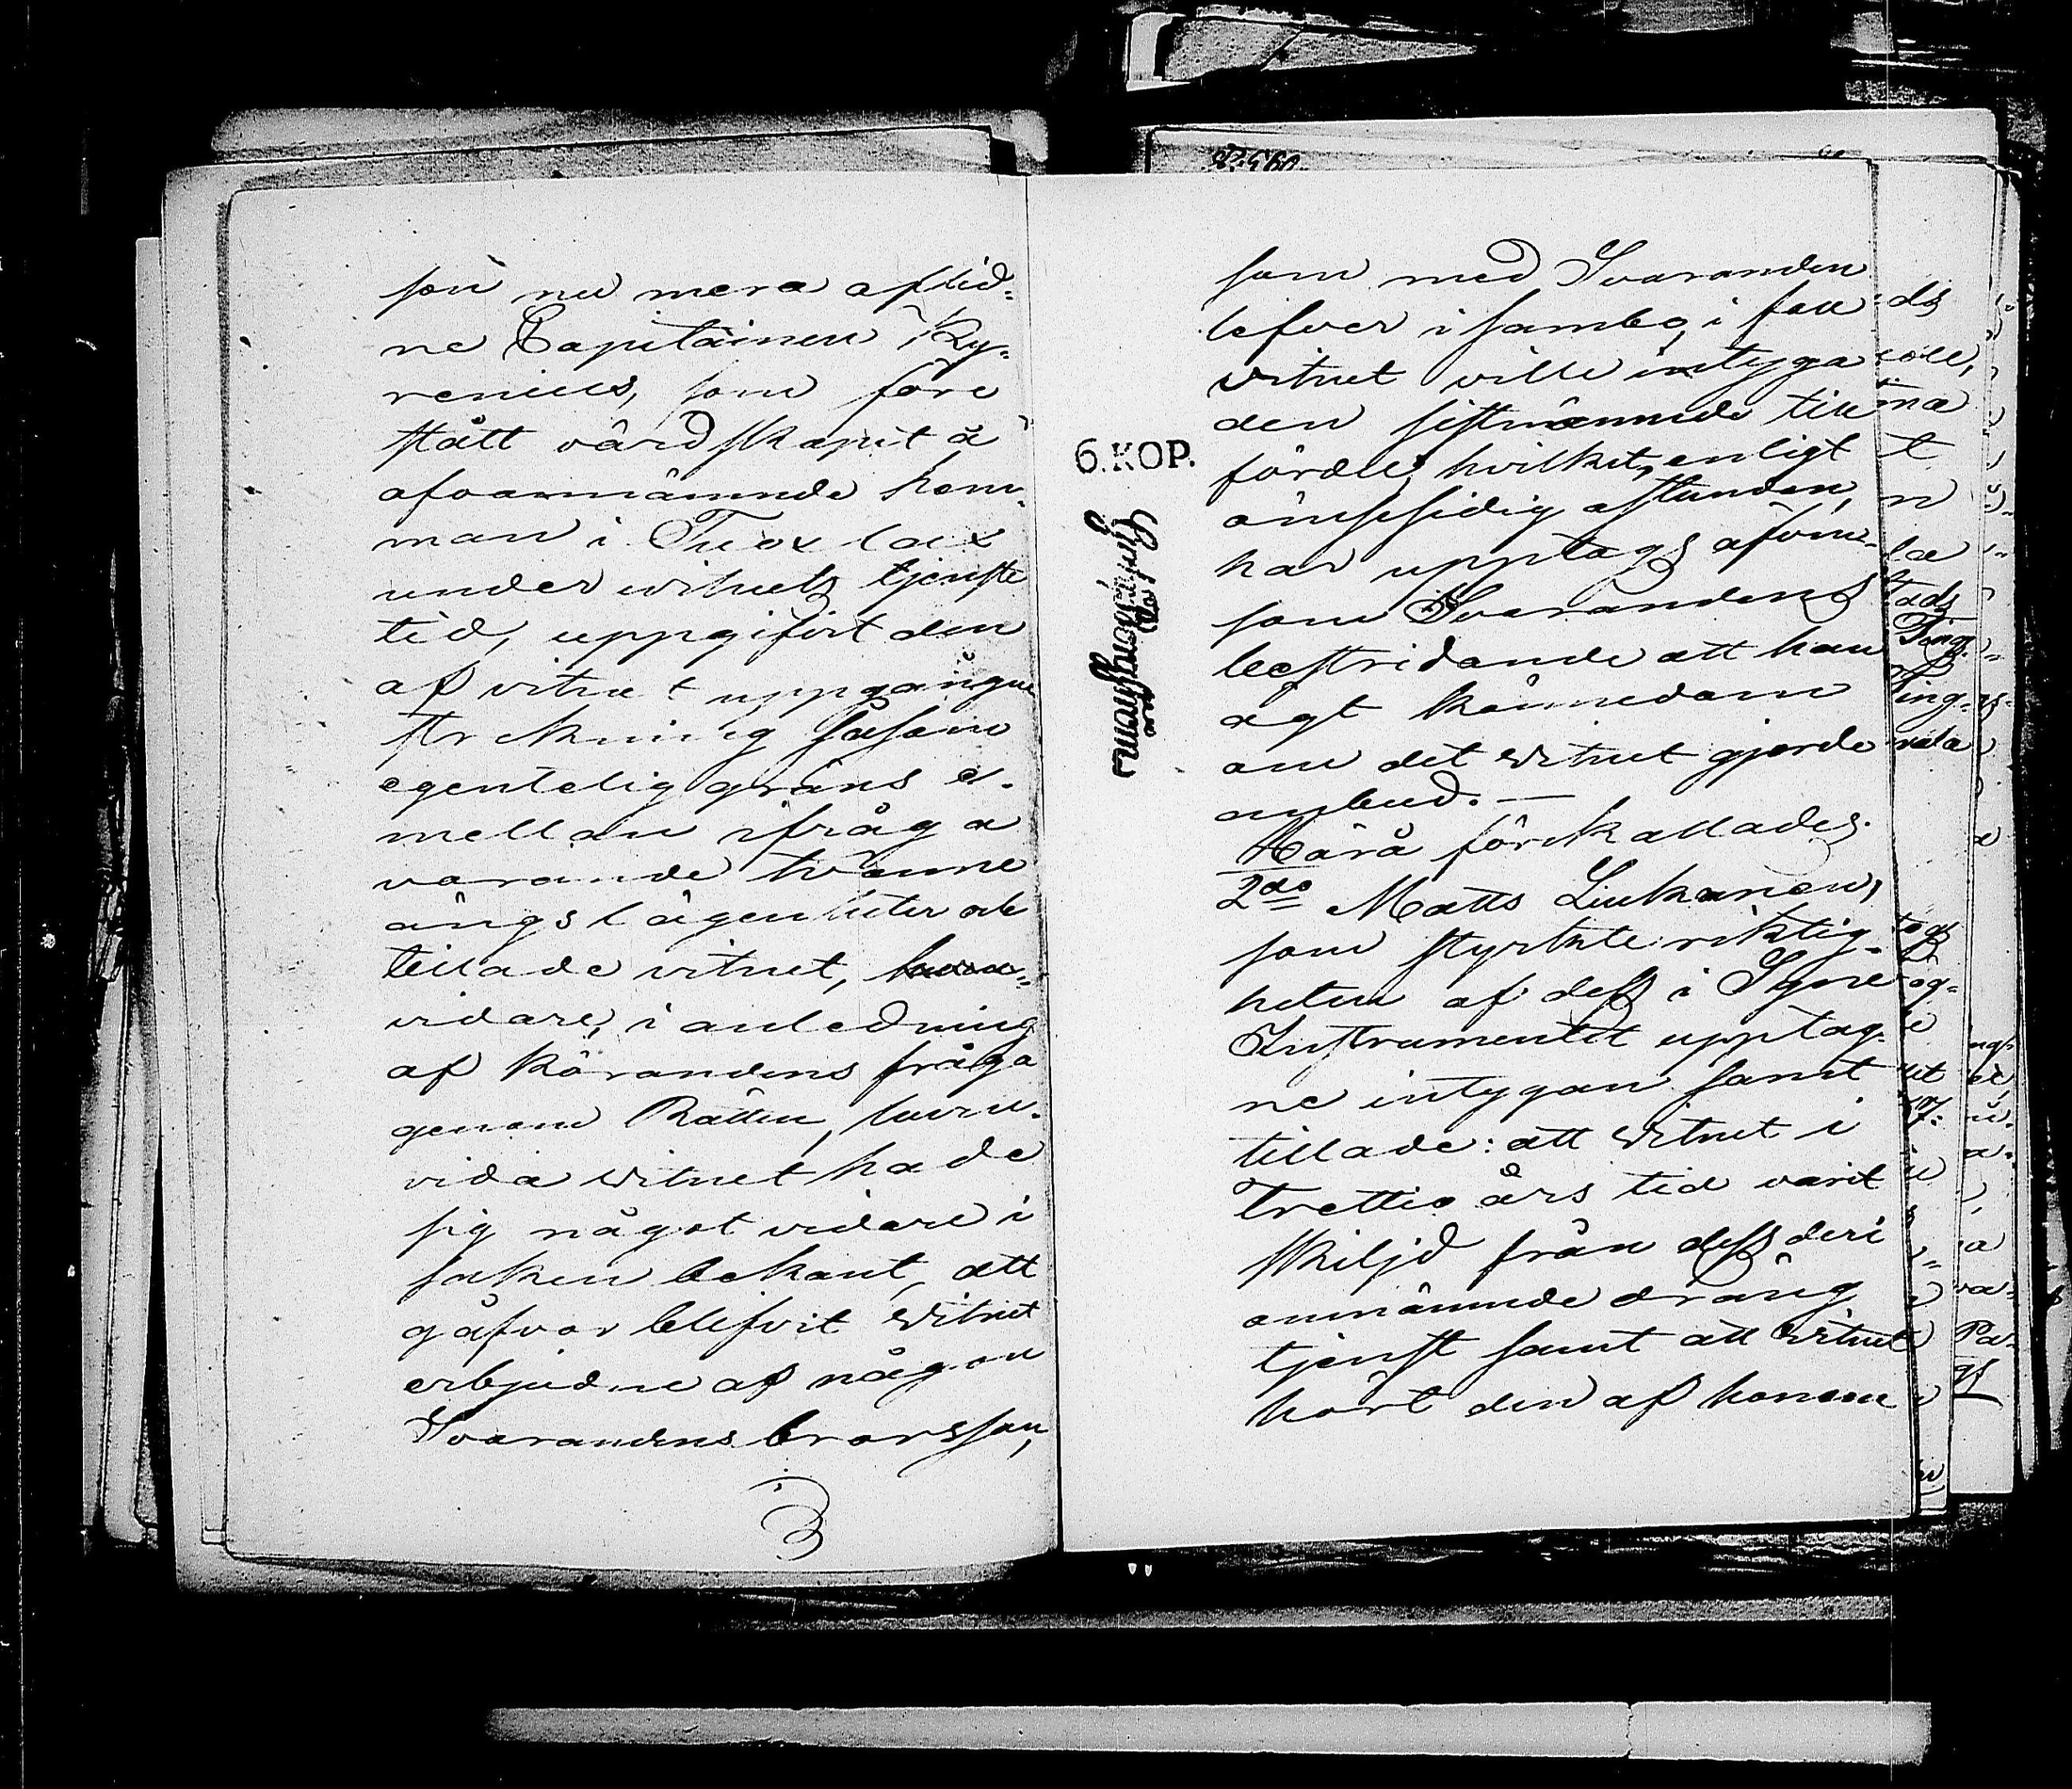 son nu mera aflid-
ne Capitainen Ky-
renius, som före
stått vårdskapet å
afvannämnde hem-
man i Tuoxlax
under witnets tjenste
tid, uppgifvit den
af vitnet uppgångne
streckning såsom
egentelig gräns e-
mellan ifråga
varande tvänne
ängslägenheter och
tillade vitnet,
vidare, i anledning
af Kärandens fråga
genom Rätten, huru-
vida witnet hade
sig något vidare i
saken bekant, att
gåfvor blifvit witnet
erbjudne af någon
Svarandens brorsson,
som med Svaranden
lefver i sambo, i fall
vitnet ville intyga
den sistnämnde till
fördel; hvilket, enligt
ömsesidig åstundan,
har upptogs äfven-
som Svarandens
bestridande att han
ägt kännedom
om det witnet gjorde
anbud. —
Härå förekallades
2do Matts Liukanen,
som styrkte riktig-
heten af dess i Syne
Instrumentet upptag-
ne intygan samt
tillade: att witnet i
Trettio års tid varit
skiljd från dess deri
omnämnde dräng
tjenst samt att witnet
hört den af honom
6. KOP.